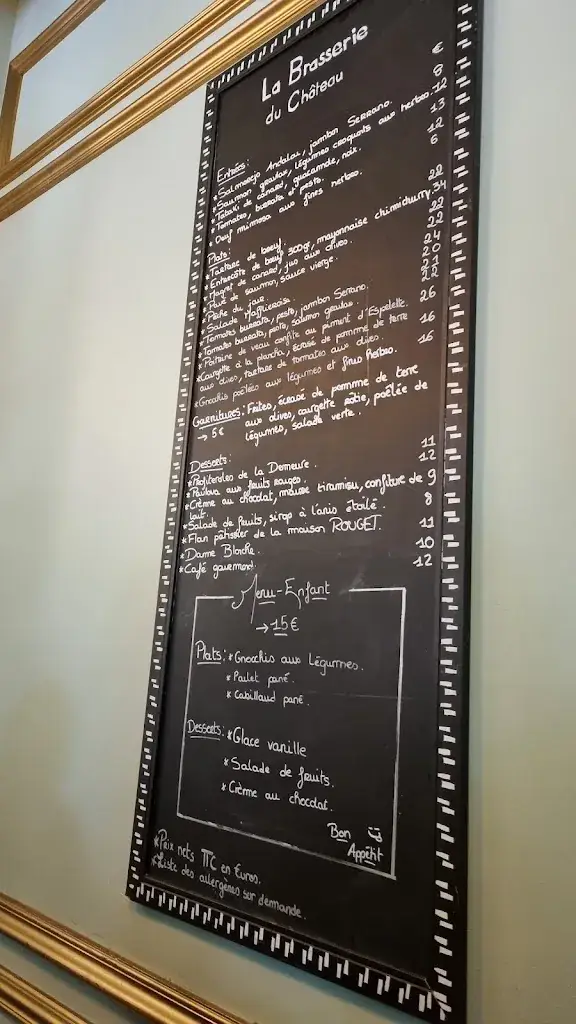 La Brasserie
du Château
€
Entrées:
* Salmorejo Andalou, jambon Serrano. 8
* Saumon gravlax, légumes croquants aux herbes. 12
* Tataki de canard, guacamole, noix. 13
* Tomates, burrata et pesto. 12
* Oeuf mimosa aux fines herbes. 6
Plats:
* Tartare de boeuf. 22
* Entrecôte de boeuf 300gr, mayonnaise chimichurry. 34
* Magret de canard, jus aux olives. 22
* Pavé de saumon, sauce vierge. 22
* Pêche du jour. 24
* Salade Maffieraise. 20
* Tomates burrata, pesto, jambon Serrano. 21
* Tomates burrata, pesto, saumon gravlax. 22
* Poitrine de veau confite au piment d'Espelette. 26
* Courgette à la plancha, écrasé de pomme de terre 16
aux olives, tartare de tomates aux olives.
* Gnocchis poêlées aux légumes et fines herbes. 16
Garnitures: Frites, écrasé de pomme de terre
→ 5€ aux olives, courgette rôtie, poêlée de
légumes, salade verte.
Desserts:
* Profiteroles de la Demeure. 11
* Pavlova aux fruits rouges. 12
* Crème au chocolat, mousse tiramisu, confiture de 9
lait.
* Salade de fruits, sirop à l'anis étoilé. 8
* Flan pâtissier de la maison ROUGET. 11
* Dame Blanche. 10
* Café gourmand. 12
Menu-Enfant
→ 15€
Plats: * Gnocchis aux Légumes.
* Poulet pané.
* Cabillaud pané.
Desserts: * Glace vanille
* Salade de fruits.
* Crème au chocolat.
Bon
Appétit
* Prix nets TTC en Euros.
* Liste des allergènes sur demande.